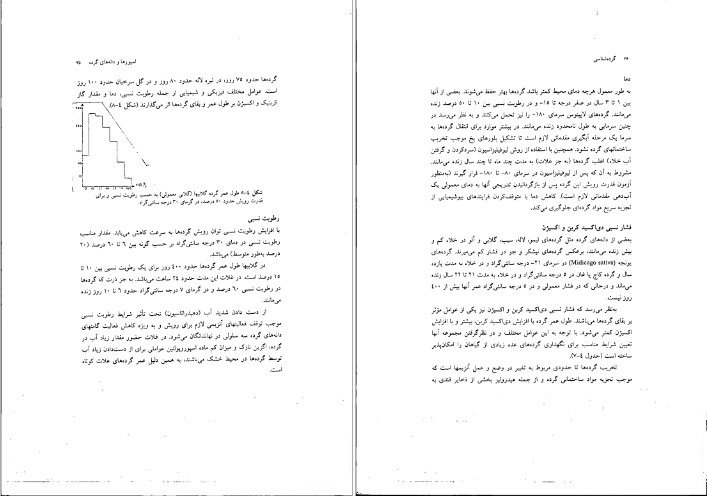 اسپورها و دانه‌های گرده ۷۵
گرده‌ها حدود ۷۵ روز، در تیره لاله حدود ۸۰ روز و در گل سرخیان حدود ۱۰۰ روز
است. عوامل مختلف فیزیکی و شیمیایی از جمله رطوبت نسبی، دما و مقدار گاز
کربنیک و اکسیژن بر طول عمر و بقای گرده‌ها اثر می‌گذارند (شکل ٤-۸).
شکل ٤-۸ طول عمر گرده گلابیها (گلابی معمولی) به حسب رطوبت نسبی و برای
قدرت رویش حدود ۵۰ درصد، در گرمای ۳۰ درجه سانتی‌گراد
رطوبت نسبی
با افزایش رطوبت نسبی توان رویش گرده‌ها به سرعت کاهش می‌یابد. مقدار مناسب
رطوبت نسبی در دمای ۳۰ درجه سانتی‌گراد بر حسب گونه بین ٦ تا ٦۰ درصد (۲۰
درصد به‌طور متوسط) می‌باشد.
در گلابیها طول عمر گرده‌ها حدود ٤۰۰ روز برای یک رطوبت نسبی بین ۱۰ تا
۱۵ درصد است. در غلات این مدت حدود ۲٤ ساعت می‌باشد. به جز ذرت که گرده‌ها
در رطوبت نسبی ٦۰ درصد و در گرمای ۷ درجه سانتی‌گراد حدود ٦ تا ۱۰ روز زنده
می‌مانند.
از دست دادن شدید آب (دهیدراتاسیون) تحت تأثیر شرایط رطوبت نسبی
موجب توقف فعالیتهای آنزیمی لازم برای رویش و به ویژه کاهش فعالیت گامتهای
دانه‌های گرده سه سلولی در نهاندانگان می‌شود. در غلات حضور مقدار زیاد آب در
گرده، اگزین نازک و میزان کم ماده اسپوروپولنین عواملی برای از دست‌دادن زیاد آب
توسط گرده‌ها در محیط خشک می‌باشند، به همین دلیل عمر گرده‌های غلات کوتاه
است.
۷۶ گرده‌شناسی
دما
به طور معمول هرچه دمای محیط کمتر باشد گرده‌ها بهتر حفظ می‌شوند. بعضی از آنها
بین ۱ تا ۳ سال در صفر درجه تا ۱۵- و در رطوبت نسبی بین ۱۰ تا ۵۰ درصد زنده
می‌مانند. گرده‌های لاپینوس سرمای ۱۸۰- را نیز تحمل می‌کنند و به نظر می‌رسد در
چنین سرمایی به طول نامحدود زنده می‌مانند. در بیشتر موارد برای انتقال گرده‌ها به
سرما یک مرحله آبگیری مقدماتی لازم است تا تشکیل بلورهای یخ موجب تخریب
ساختمانهای گرده نشود. همچنین با استفاده از روش لیوفیلیزاسیون (سردکردن و گرفتن
آب خلاء) اغلب گرده‌ها (به جز غلات) به مدت چند ماه تا چند سال زنده می‌مانند.
مشروط به آن که پس از لیوفیلیزاسیون در سرمای ۸۰- تا ۱۸۰- قرار گیرند (به‌منظور
آزمون قدرت رویش این گرده پس از بازگرداندن تدریجی آنها به دمای معمولی یک
آب‌دهی مقدماتی لازم است). کاهش دما با متوقف‌کردن فرایندهای بیوشیمیایی از
تجزیه سریع مواد گرده‌ای جلوگیری می‌کند.
فشار نسبی دی‌اکسید کربن و اکسیژن
بعضی از دانه‌های گرده مثل گرده‌های لیمو، لاله، سیب، گلابی و آلو در خلاء کم و
بیش زنده می‌مانند. برعکس گرده‌های نیشکر و جو در فشار کم می‌میرند. گرده‌های
یونجه (Midicago sativa) در سرمای ۲۱- درجه سانتی‌گراد و در خلاء به مدت یازده
سال و گرده کاج یا غان در ۵ درجه سانتی‌گراد و در خلاء به مدت ۲۱ تا ۲۲ سال زنده
می‌ماند و درحالی که در فشار معمولی و در ۵ درجه سانتی‌گراد عمر آنها بیش از ٤۰۰
روز نیست.
به‌نظر می‌رسد که فشار نسبی دی‌اکسید کربن و اکسیژن نیز یکی از عوامل مؤثر
بر بقای گرده‌ها می‌باشند. طول عمر گرده با افزایش دی‌اکسید کربن، بیشتر و با افزایش
اکسیژن کمتر می‌شود. با توجه به این عوامل مختلف و در نظرگرفتن مجموعه آنها
تعیین شرایط مناسب برای نگهداری گرده‌های عده زیادی از گیاهان را امکان‌پذیر
ساخته است (جدول ٤-۷).
تخریب گرده‌ها تا حدودی مربوط به تغییر در وضع و عمل آنزیمها است که
موجب تجزیه مواد ساختمانی گرده و از جمله هیدرولیز بخشی از ذخایر قندی به